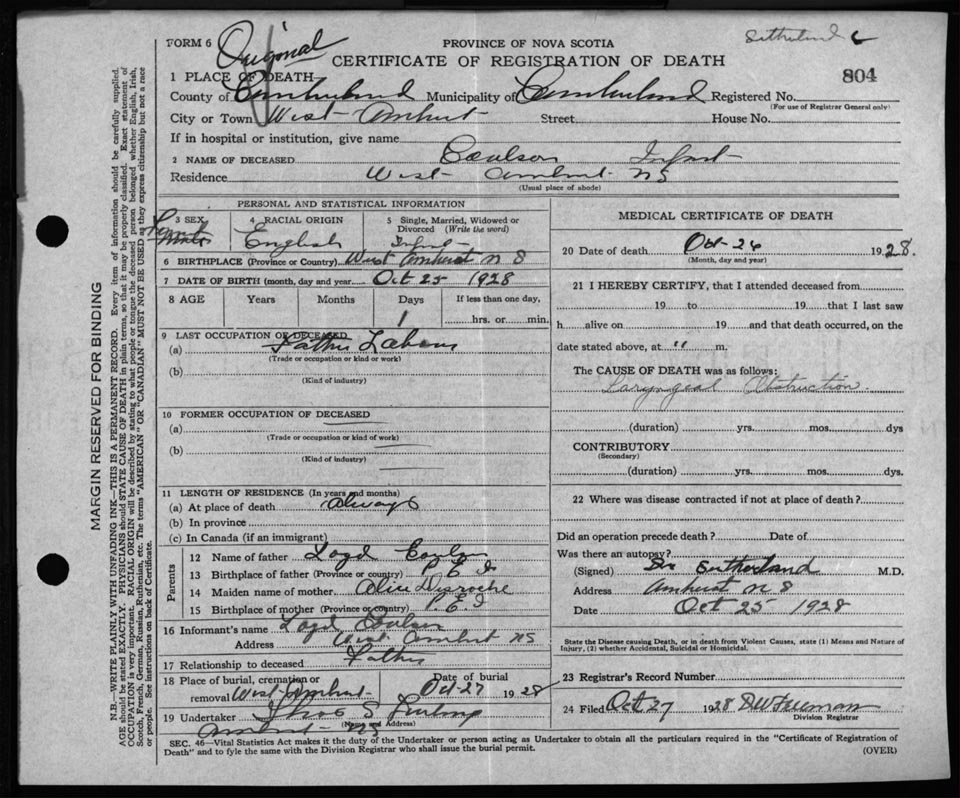 Sutherland
FORM 6 Original
PROVINCE OF NOVA SCOTIA
CERTIFICATE OF REGISTRATION OF DEATH
804
1 PLACE OF DEATH
County of Cumberland Municipality of Cumberland Registered No.
(For use of Registrar General only)
City or Town West Amherst Street House No.
If in hospital or institution, give name
2 NAME OF DECEASED Coulson Infant
Residence West Amherst NS
(Usual place of abode)
PERSONAL AND STATISTICAL INFORMATION
3 SEX Female
4 RACIAL ORIGIN English
5 Single, Married, Widowed or Divorced (Write the word) Infant
6 BIRTHPLACE (Province or Country) West Amherst N S
7 DATE OF BIRTH (month, day and year) Oct 25 1928
8 AGE Years Months Days If less than one day,
1 hrs. or min.
9 LAST OCCUPATION OF DECEASED
(a) Father
(Trade or occupation or kind or work)
(b)
(Kind of industry)
10 FORMER OCCUPATION OF DECEASED
(a)
(Trade or occupation or kind of work)
(b)
(Kind of industry)
11 LENGTH OF RESIDENCE (In years and months)
(a) At place of death always
(b) In province
(c) In Canada (if an immigrant)
Parents
12 Name of father Loyd Coulson
13 Birthplace of father (Province or country) P. E. I
14 Maiden name of mother
15 Birthplace of mother (Province or country) P. E. I
16 Informant's name Loyd Coulson
Address West Amherst NS
17 Relationship to deceased Father
18 Place of burial, cremation or removal West Amherst Date of burial Oct 27 1928
19 Undertaker
(Name and Address)
Amherst NS
MEDICAL CERTIFICATE OF DEATH
20 Date of death Oct-26 1928.
(Month, day and year)
21 I HEREBY CERTIFY, that I attended deceased from
19 to 19 that I last saw
h alive on 19 and that death occurred, on the
date stated above, at " m.
The CAUSE OF DEATH was as follows:
Laryngeal Obstruction
(duration) yrs. mos. dys
CONTRIBUTORY
(Secondary)
(duration) yrs. mos. dys.
22 Where was disease contracted if not at place of death?
Did an operation precede death? Date of
Was there an autopsy?
(Signed) Dr Sutherland M.D.
Address Amherst N S
Date Oct 25 1928
State the Disease causing Death, or in death from Violent Causes, state (1) Means and Nature of
Injury, (2) whether Accidental, Suicidal or Homicidal.
23 Registrar's Record Number
24 Filed Oct 27 1928
Division Registrar
SEC. 46—Vital Statistics Act makes it the duty of the Undertaker or person acting as Undertaker to obtain all the particulars required in the "Certificate of Registration of
Death" and to fyle the same with the Division Registrar who shall issue the burial permit.
(OVER)
MARGIN RESERVED FOR BINDING
N.B.—WRITE PLAINLY WITH UNFADING INK—THIS IS A PERMANENT RECORD. Every item of information should be carefully supplied.
AGE should be stated EXACTLY. PHYSICIANS should STATE CAUSE OF DEATH in plain terms, so that it may be properly classified. Exact statement of
OCCUPATION is very important. RACIAL ORIGIN will be described by stating to what people or tongue the deceased person belonged whether English, Irish,
Scotch, French, German, Russian, Ruthenian, etc. The terms "AMERICAN" OR "CANADIAN" MUST NOT BE USED as they express citizenship but not a race
or people. See instructions on back of Certificate.